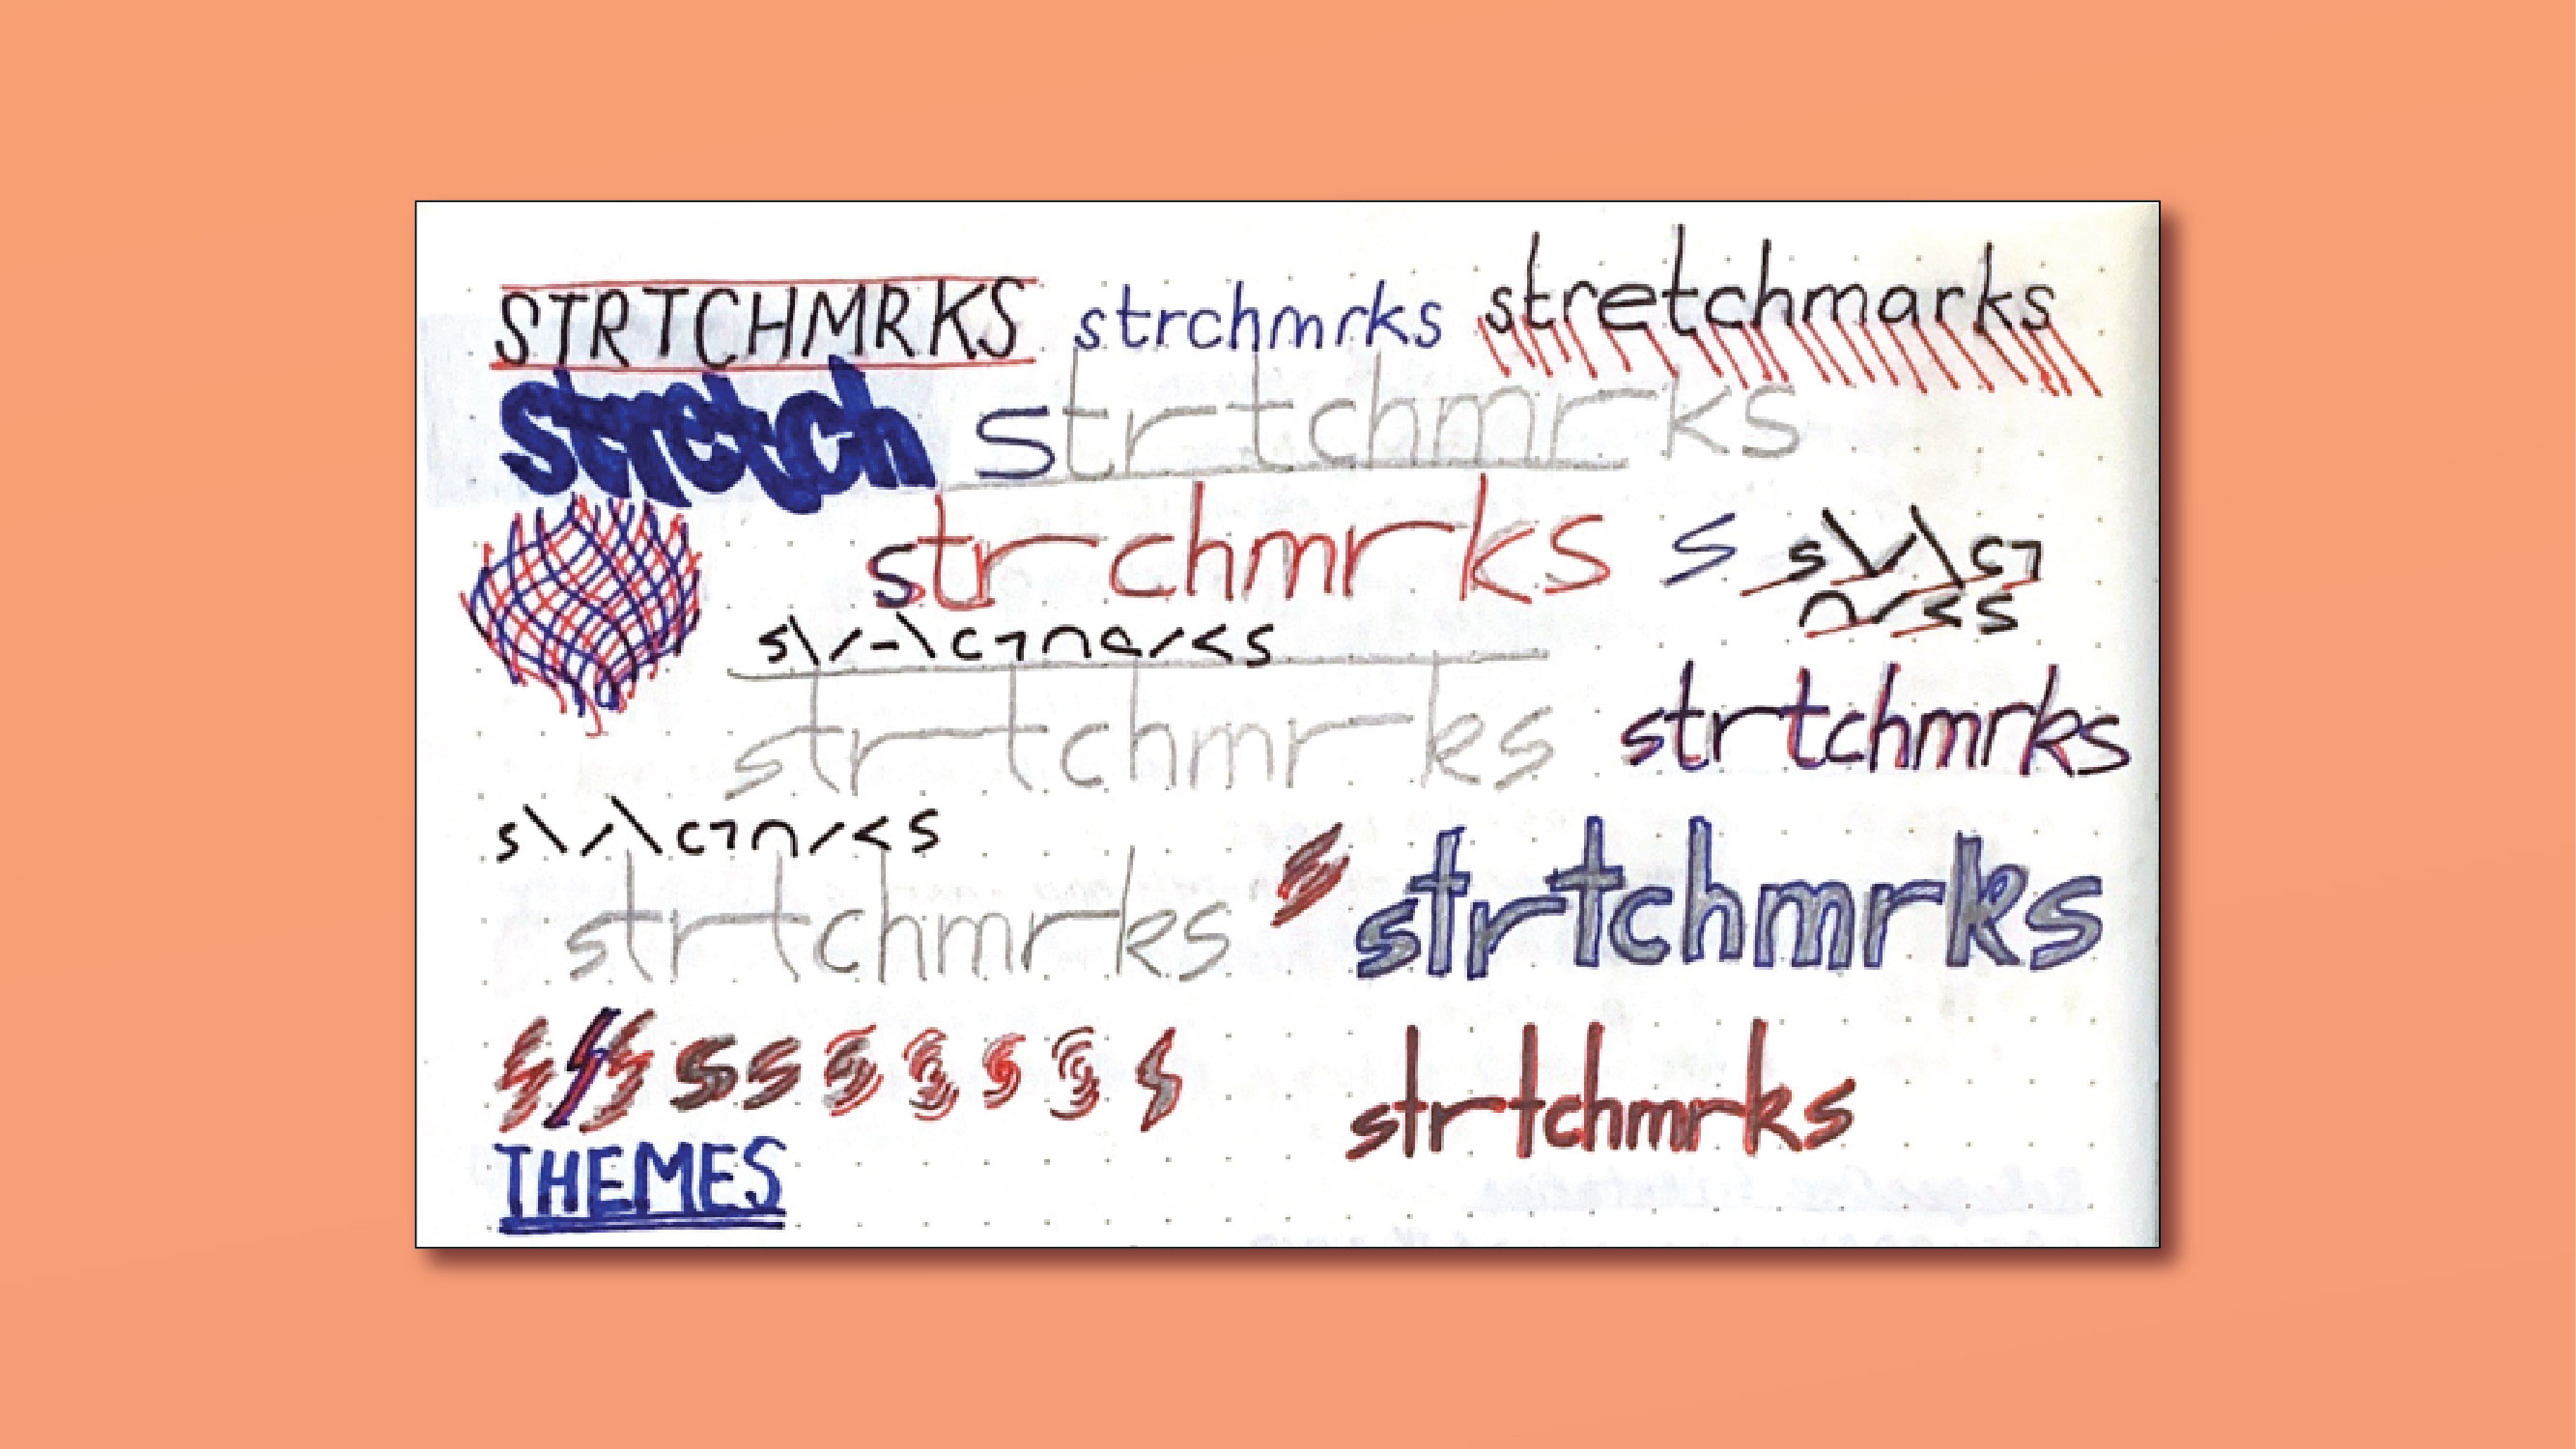 STRTCHMRKS strchmrks stretchmarks
stretch strtchmrks
strchmrks s s\/\c¬
∩/<s
s\/-\c¬∩a/<s
strtchmrks strtchmrks
s\/\c¬∩/<s
strtchmrks s strtchmrks
s s s s s s s s s s strtchmrks
THEMES